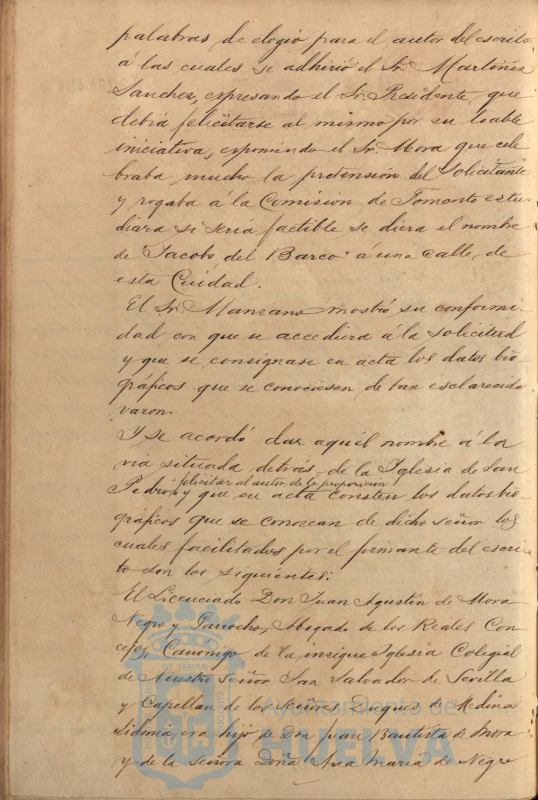 palabras de elogio para el autor del escrito
á las cuales se adhirió el Sr. Martínez
Sanchez, expresando el Sr. Presidente que
debía felicitarse al mismo por su loable
iniciativa, exponiendo el Sr. Mora que cele
braba mucho la pretensión del solicitante
y rogaba á la Comisión de Fomento estu
diara si sería factible se diera el nombre
de "Jacobo del Barco" á una calle de
esta Ciudad.
El Sr. Manzano mostró su conformi
dad con que se accediera á la solicitud
y que se consignase en acta los datos bio
gráficos que se conociesen de tan esclarecido
varon.
Y se acordó dar aquél nombre á la
via situada detrás de la Iglesia de San
felicitar al autor de la proposicion
Pedro, y que en acta consten los datos bio
gráficos que se conozcan de dicho señor los
cuales facilitados por el firmante del escri
to son los siguientes:
El Licenciado Don Juan Agustín de Mora
Negro y Garrocho, Abogado de los Reales Con
cejos, Canonigo de la insigne Iglesia Colegial
de Nuestro Señor San Salvador de Sevilla
y Capellan de los Señores Duques de Medina
Sidonia, era hijo de Don Juan Bautista de Mora
y de la Señora Doña Ana María de Negro
Ayuntamiento de
HUELVA